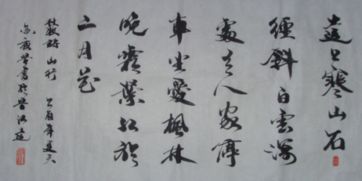 遠上寒山石
徑斜白雲深
處有人家停
車坐愛楓林
晚霜葉紅於
二月花
杜牧詩山行